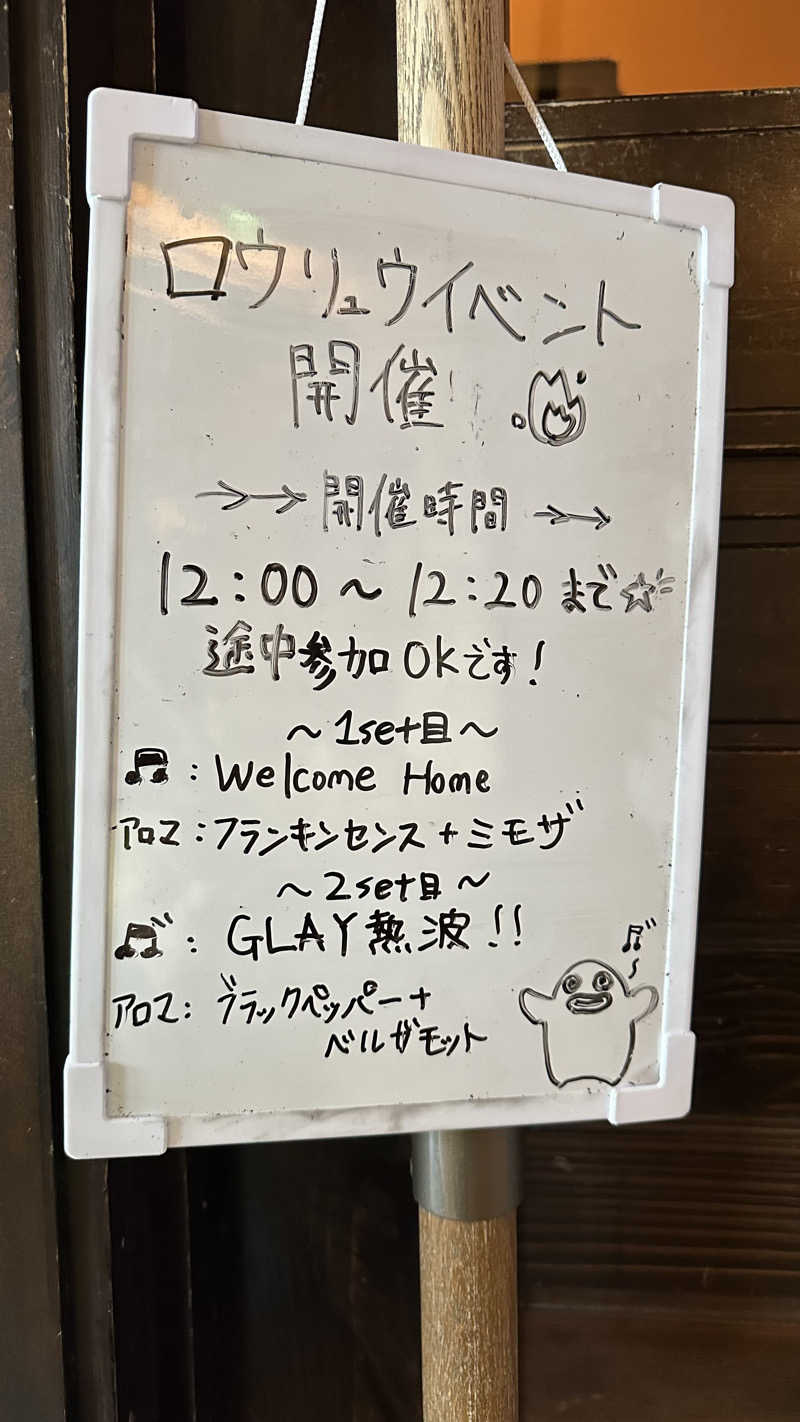 ロウリュウイベント
開催!
→→ 開催時間 →→
12:00 ~ 12:20 まで☆
途中参加 OKです!
~ 1set目 ~
♫ : Welcome Home
アロマ:フランキンセンス+ミモザ
~ 2set目 ~
♫ : GLAY熱波!!
アロマ: ブラックペッパー+
ベルガモット